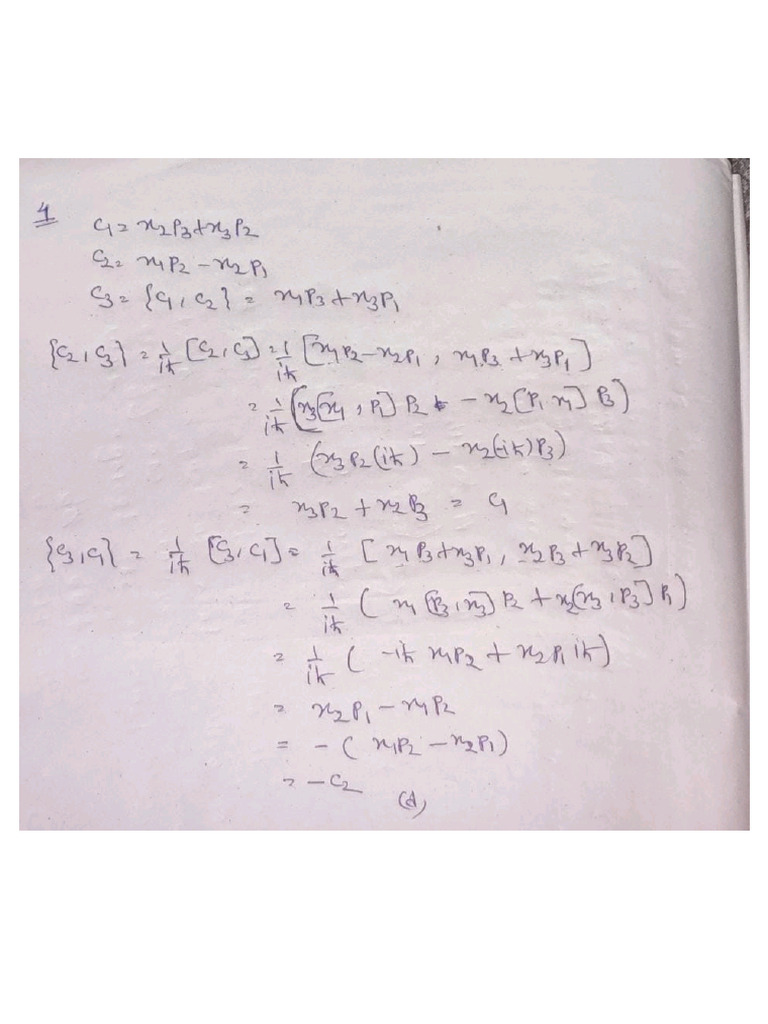 4
C₁ = x₂P₃+x₃P₂
C₂ = x₁P₂ − x₂P₁
C₃ = {C₁, C₂} = x₁P₃ + x₃P₁
{C₂, C₃} = 1/iħ [C₂, C₃] = 1/iħ [x₁P₂ − x₂P₁, x₁P₃ + x₃P₁]
= 1/iħ (x₃[x₁, P₁] P₂ − x₂[P₁ x₁] P₃)
= 1/iħ (x₃P₂(iħ) − x₂(-iħ)P₃)
= x₃P₂ + x₂P₃ = C₁
{C₃, C₁} = 1/iħ [C₃, C₁] = 1/iħ [x₁P₃+x₃P₁, x₂P₃+x₃P₂]
= 1/iħ (x₁[P₃, x₃] P₂ + x₂[x₃, P₃] P₁)
= 1/iħ ( -iħ x₁P₂ + x₂P₁ iħ)
= x₂P₁ − x₁P₂
= −(x₁P₂ − x₂P₁)
= −C₂
(d)